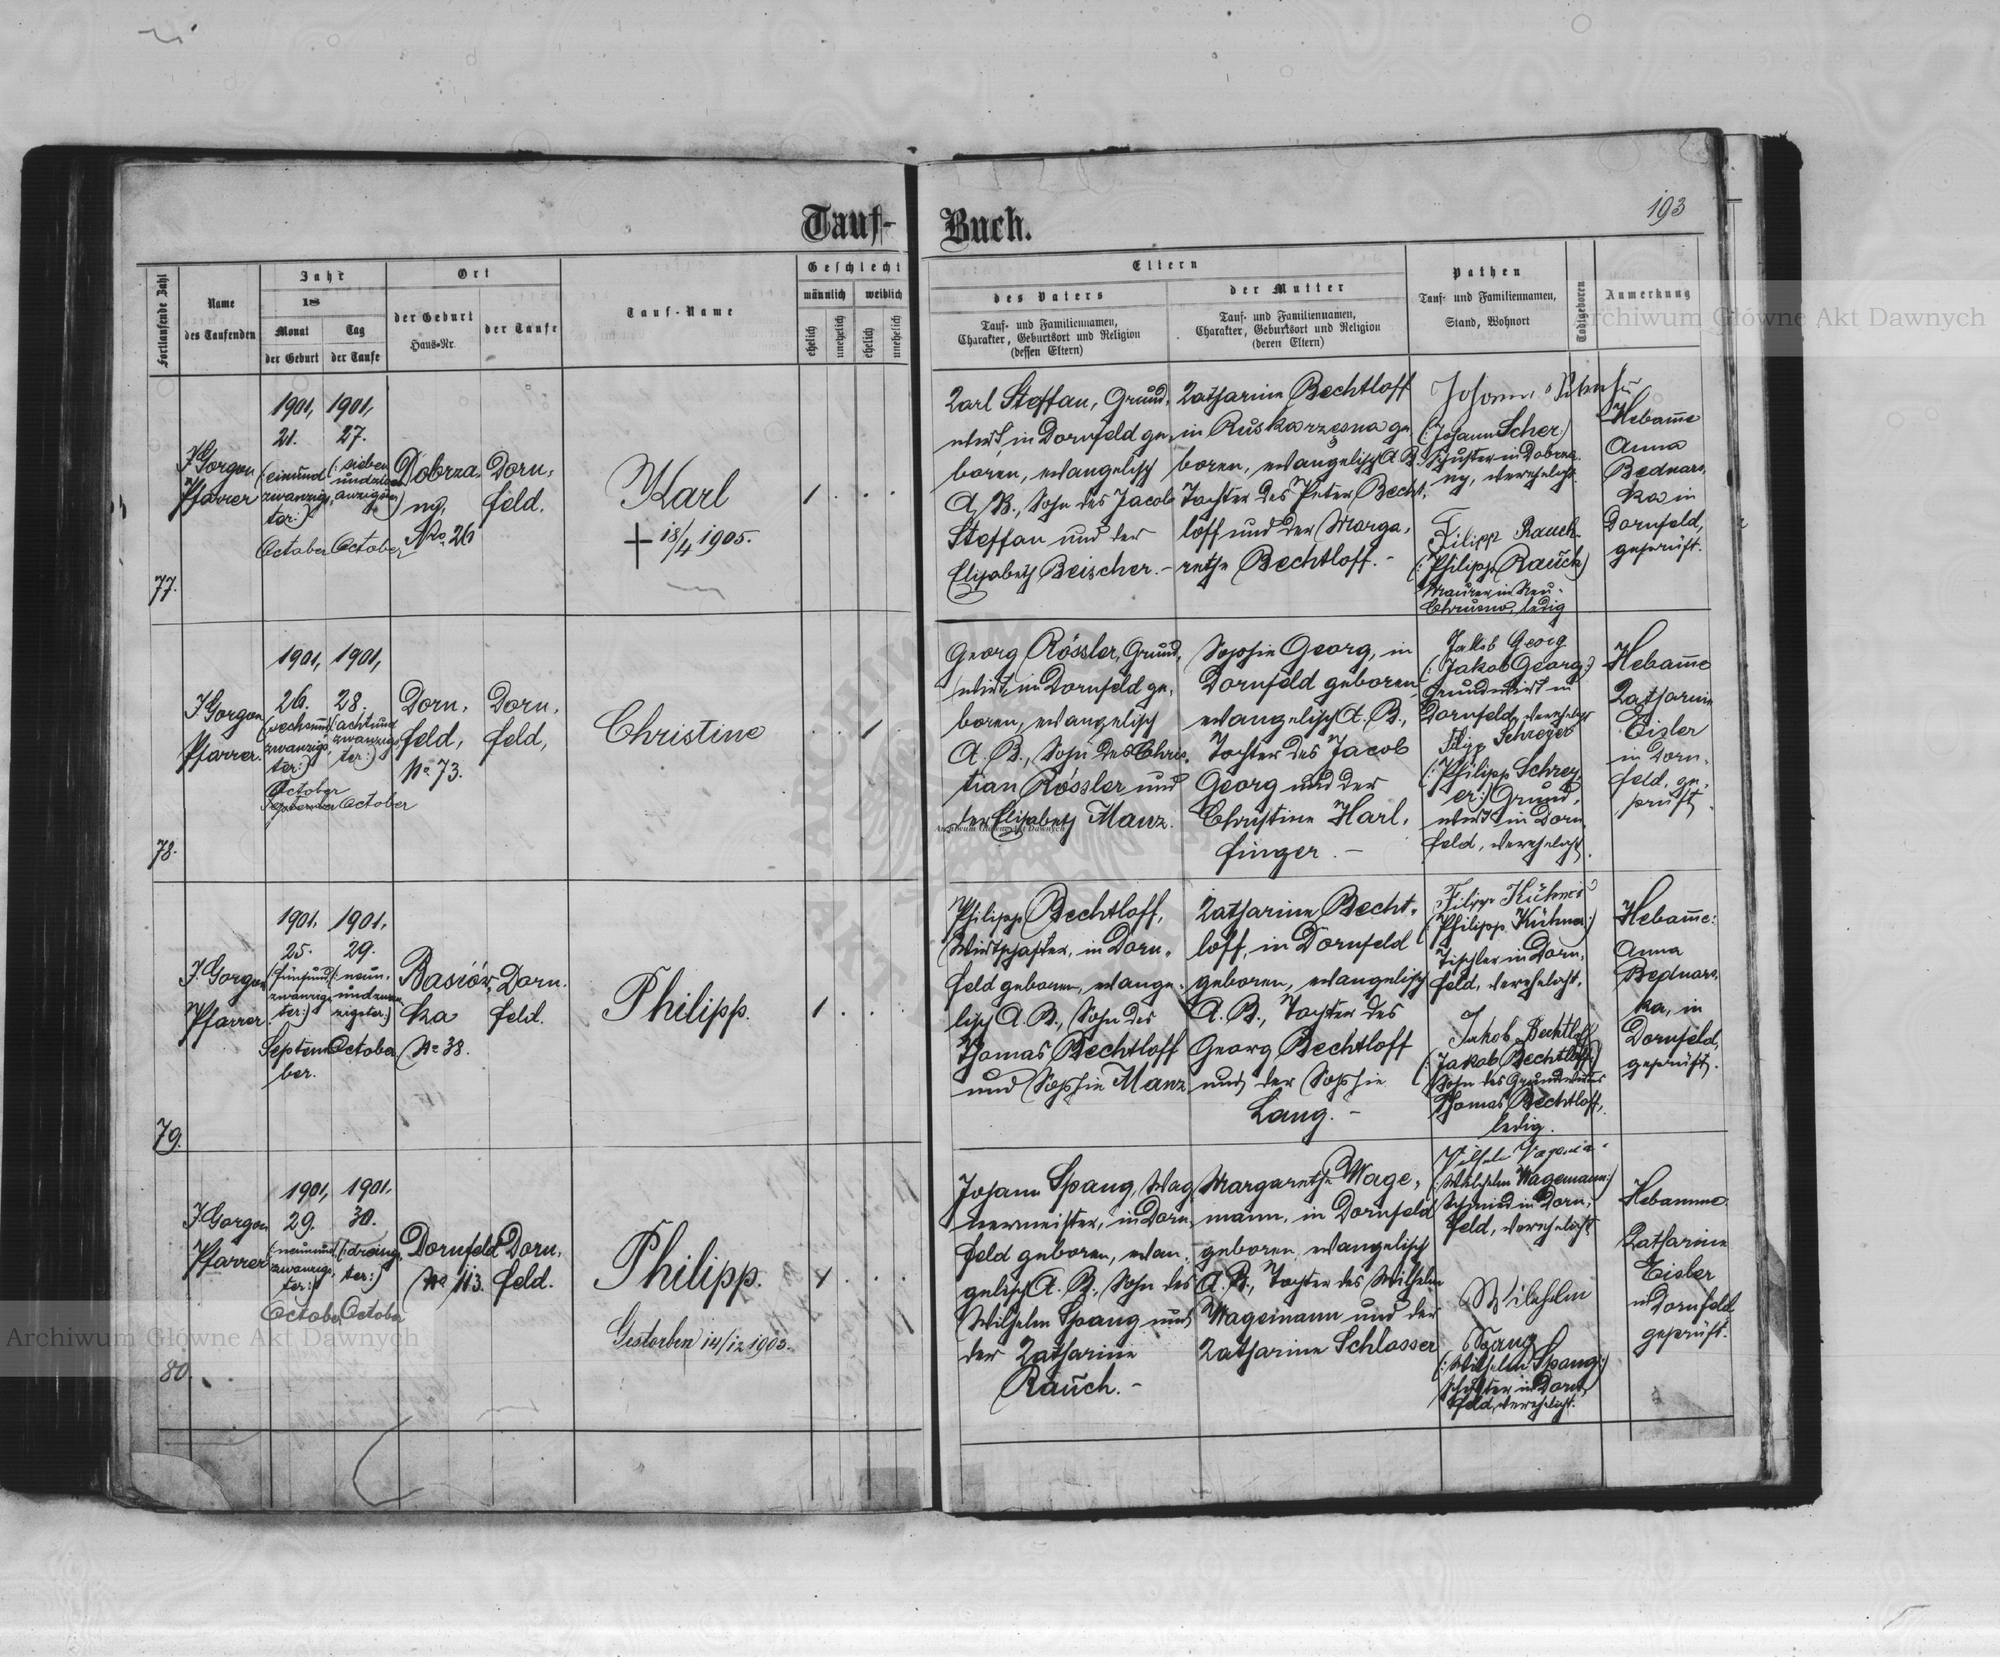 193
Tauf-Buch.
Fortlaufende Zahl
Name
des Taufenden
Jahr
18
Monat
der Geburt
Tag
der Taufe
Ort
der Geburt
Haus-Nr.
der Taufe
Tauf-Name
Geschlecht
männlich
weiblich
ehelich
unehelich
ehelich
unehelich
Eltern
des Vaters
Tauf- und Familiennamen,
Charakter, Geburtsort und Religion
(dessen Eltern)
der Mutter
Tauf- und Familiennamen,
Charakter, Geburtsort und Religion
(deren Eltern)
Pathen
Tauf- und Familiennamen,
Stand, Wohnort
Todtgeboren
Anmerkung
77.
J Gorgon
Pfarrer
1901,
21.
(einund
zwanzigs
ter:)
October
1901,
27.
(: sieben
undzw
anzigste)
October
Dobrza,
ny,
No. 26
Dorn,
feld.
Karl
+ 18/4 1905.
1
Karl Steffan, Grund,
wirt in Dornfeld ge,
boren, evangelisch
A. B., Sohn des Jacob
Steffan und der
Elisabeth Beischer. –
Katharine Bechtloff
in Ruska rzęsna ge
boren, evangelisch A. B.
Tochter des Peter Becht,
loff und der Marga,
rethe Bechtloff. –
Johann
(: Johann Scher:)
Schuster in Dobrza,
ny, verehelicht.
Filipp Rauch
(: Philipp Rauch)
Maurer in Neu-
Chrusno, ledig
Hebamme
Anna
Bednars,
ka in
Dornfeld,
geprüft.
78.
J Gorgon
Pfarrer.
1901,
26.
(sechsund
zwanzigs,
ter:)
October
September
1901,
28.
(: achtund
zwanzigs
ter:)
October
Dorn,
feld,
No 73.
Dorn,
feld,
Christine
1
Georg Rössler, Grund,
wirt in Dornfeld ge,
boren, evangelisch
A. B., Sohn des Chris,
tian Rössler und
der Elisabeth Manz.
Sophie Georg, in
Dornfeld geboren
evangelisch A. B.,
Tochter des Jacob
Georg und der
Christine Harl,
finger. –
Jakob Georg
(: Jakob Georg:)
Grundwirt in
Dornfeld, verehelicht
Filip Schreyer
(: Philipp Schrey,
er:) Grund,
wirt in Dorn,
feld, verehelicht.
Hebamme
Katharine
Eisler
in Dorn,
feld, ge,
prüft.
79.
J Gorgon
Pfarrer.
1901.
25.
(fünfund
zwanzigs
ter:)
Septem
ber.
1901,
29.
(: neun,
undzwan
zigster:)
October
Basiów,
ka
No 38.
Dorn.
feld.
Philipp.
1
Philipp Bechtloff,
Wirtschafter, in Dorn,
feld geboren, evange,
lisch A. B., Sohn des
Thomas Bechtloff
und Sophie Manz
Katharine Becht,
loff, in Dornfeld
geboren, evangelisch
A. B., Tochter des
Georg Bechtloff
und der Sophie
Lang. –
(: Philipp Kühner:)
Tischler in Dorn,
feld, verehelicht.
Jakob Bechtloff
(: Jakob Bechtloff:)
Sohn des Grundwirtes
Thomas Bechtloff,
ledig.
Hebamme:
Anna
Bednars,
ka, in
Dornfeld,
geprüft.
80.
J Gorgon
Pfarrer
1901,
29.
(: neunund
zwanzigs,
ter:)
October
1901.
30.
(: dreißigs,
ter:)
October
Dornfeld
No 113.
Dorn,
feld.
Philipp.
Gestorben 14/12 1903.
1
Johann Spang, Wag
nermeister, in Dorn,
feld geboren, evan,
gelisch A. B., Sohn des
Wilhelm Spang und
der Katharine
Rauch. –
Margarethe Wage,
mann, in Dornfeld
geboren, evangelisch
A. B., Tochter des Wilhelm
Wagemann und der
Katharine Schlosser
(: Wilhelm Wagemann:)
Schmied in Dorn,
feld, verehelicht
Wilhelm
Spang
(: Wilhelm Spang:)
in Dorn,
feld, verehelicht.
Hebamme
Katharine
Eisler
in Dornfeld
geprüft.
Archiwum Główne Akt Dawnych
Archiwum Główne Akt Dawnych
Archiwum Główne Akt Dawnych